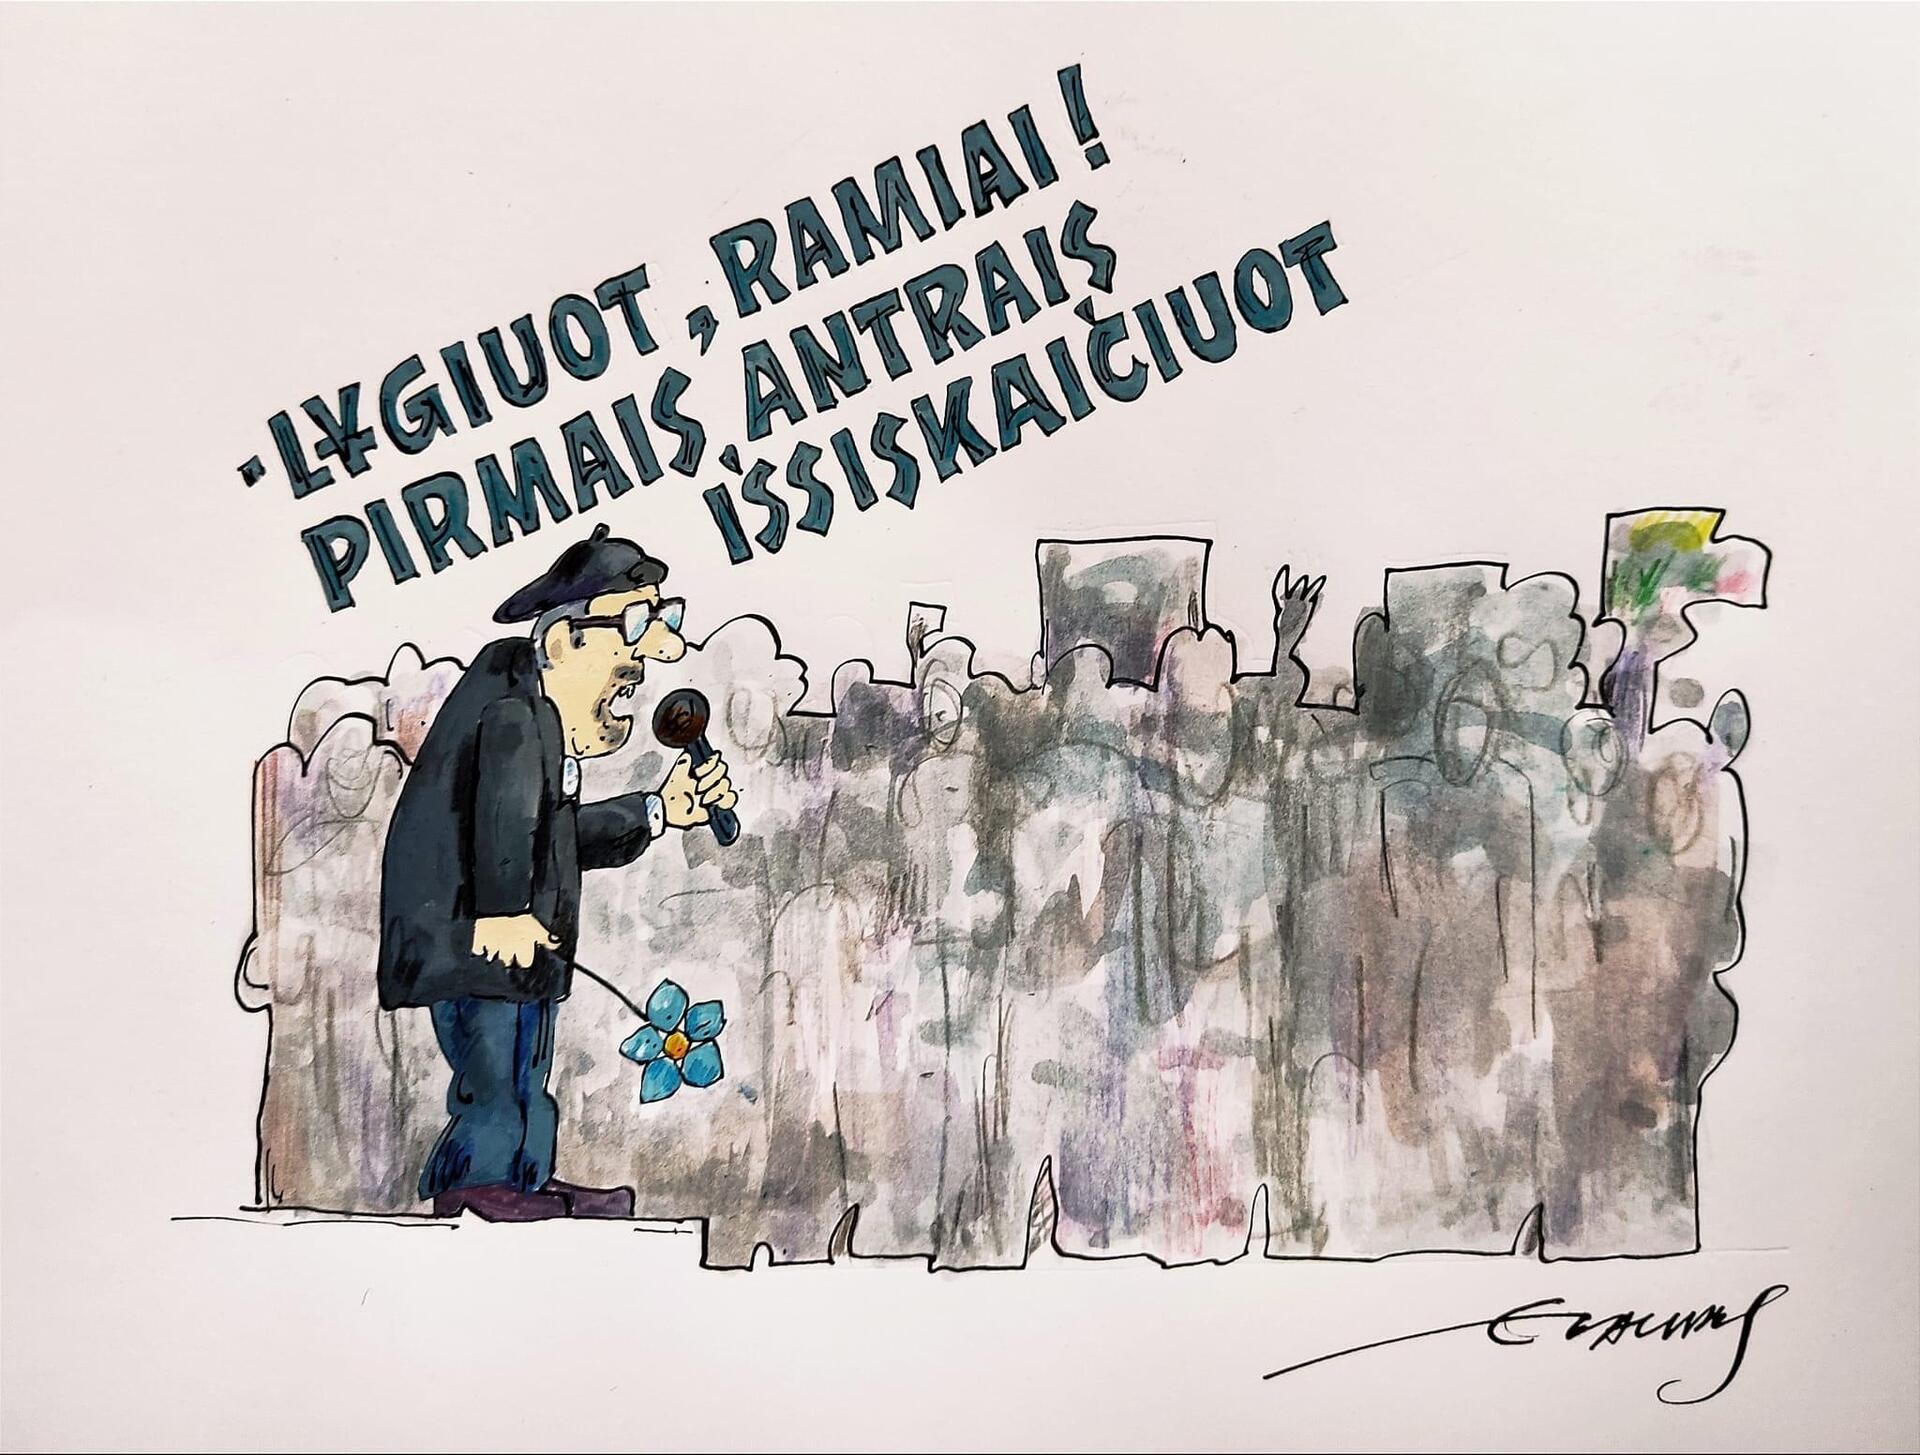 - LYGIUOT, RAMIAI!
PIRMAIS, ANTRAIS
IŠSISKAIČIUOT